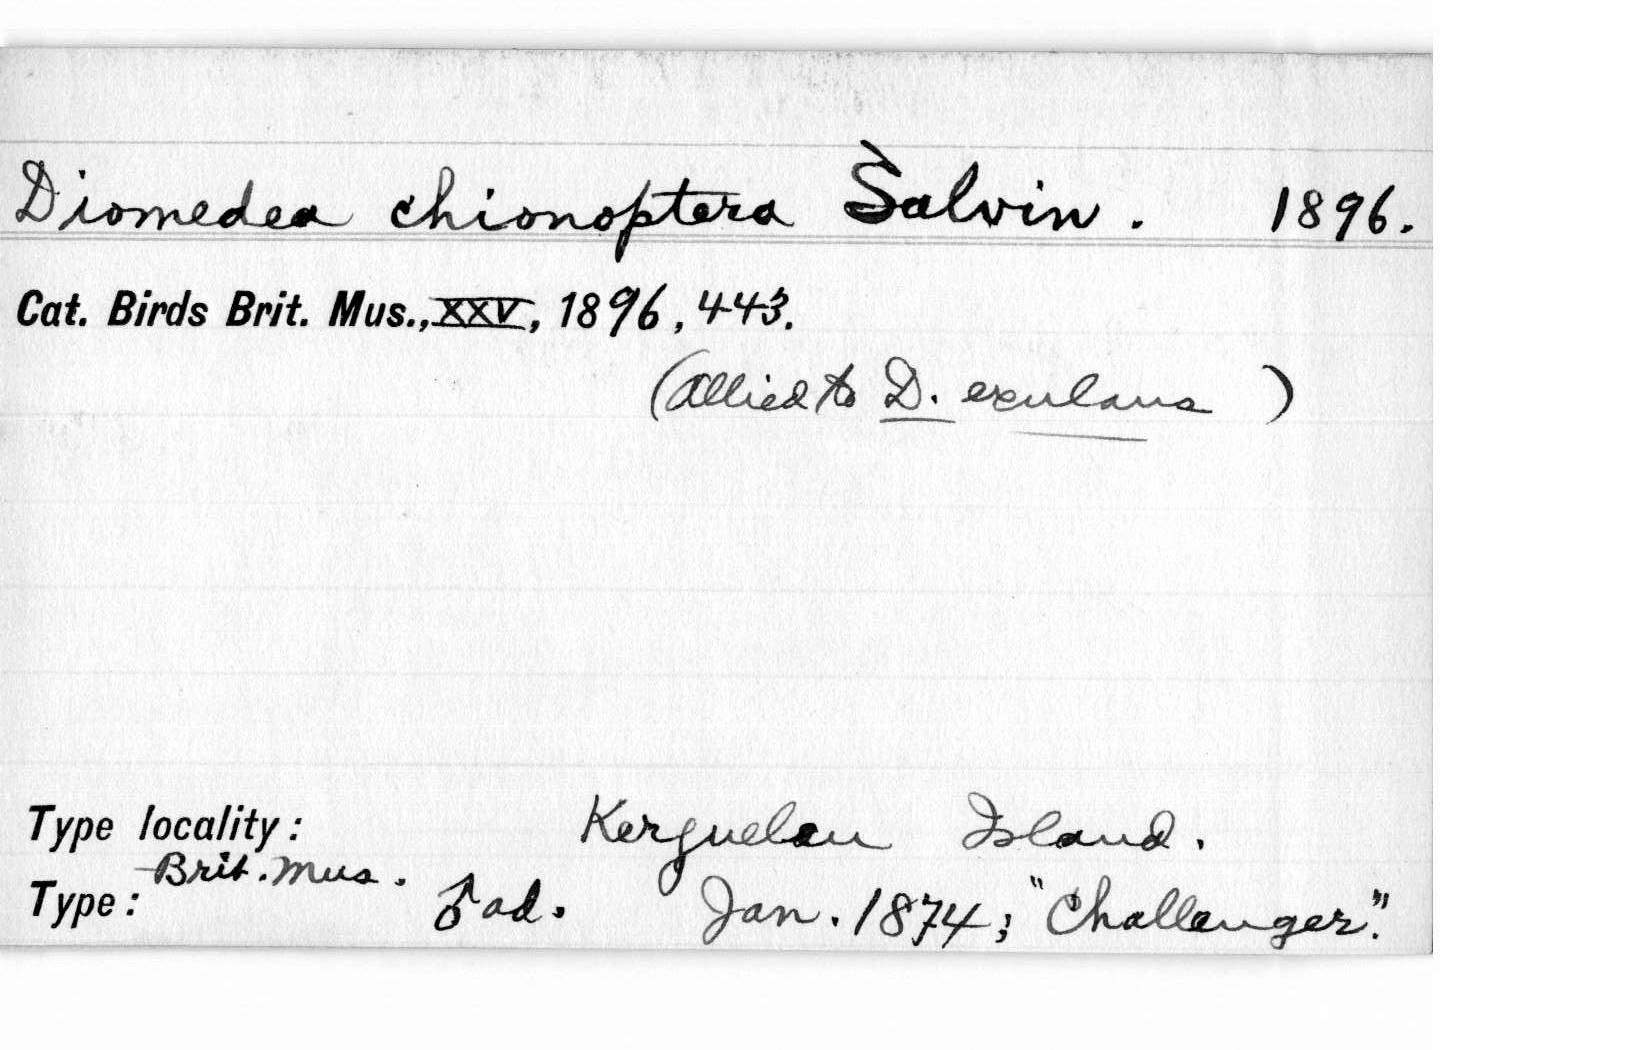 Diomedea chionoptera Salvin. 1896.
Cat. Birds Brit. Mus., XXV, 1896, 443.
(allied to D. exulans)
Type locality: Kerguelen Island.
Brit. Mus.
Type: ♂ ad. Jan. 1874; "Challenger".